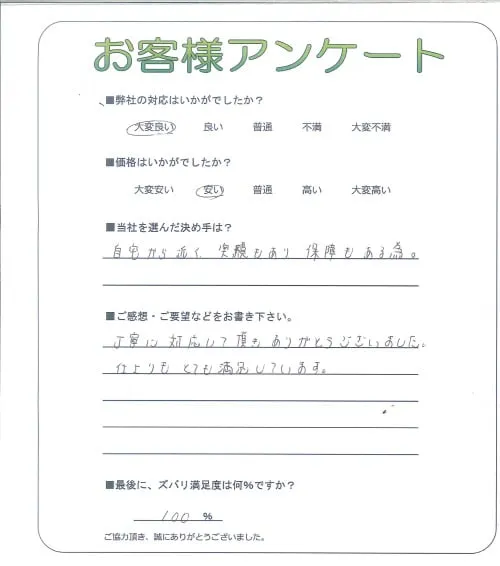 お客様アンケート
■弊社の対応はいかがでしたか？
大変良い 良い 普通 不満 大変不満
■価格はいかがでしたか？
大変安い 安い 普通 高い 大変高い
■当社を選んだ決め手は？
自宅から近く、実績もあり 保障もある為。
■ご感想・ご要望などをお書き下さい。
丁寧に対応して頂きありがとうございました。
仕上りもとても満足しています。
■最後に、ズバリ満足度は何%ですか？
100 %
ご協力頂き、誠にありがとうございました。